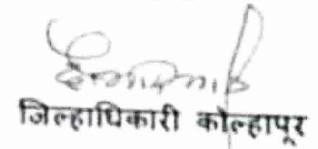 जिल्हाधिकारी कोल्हापूर